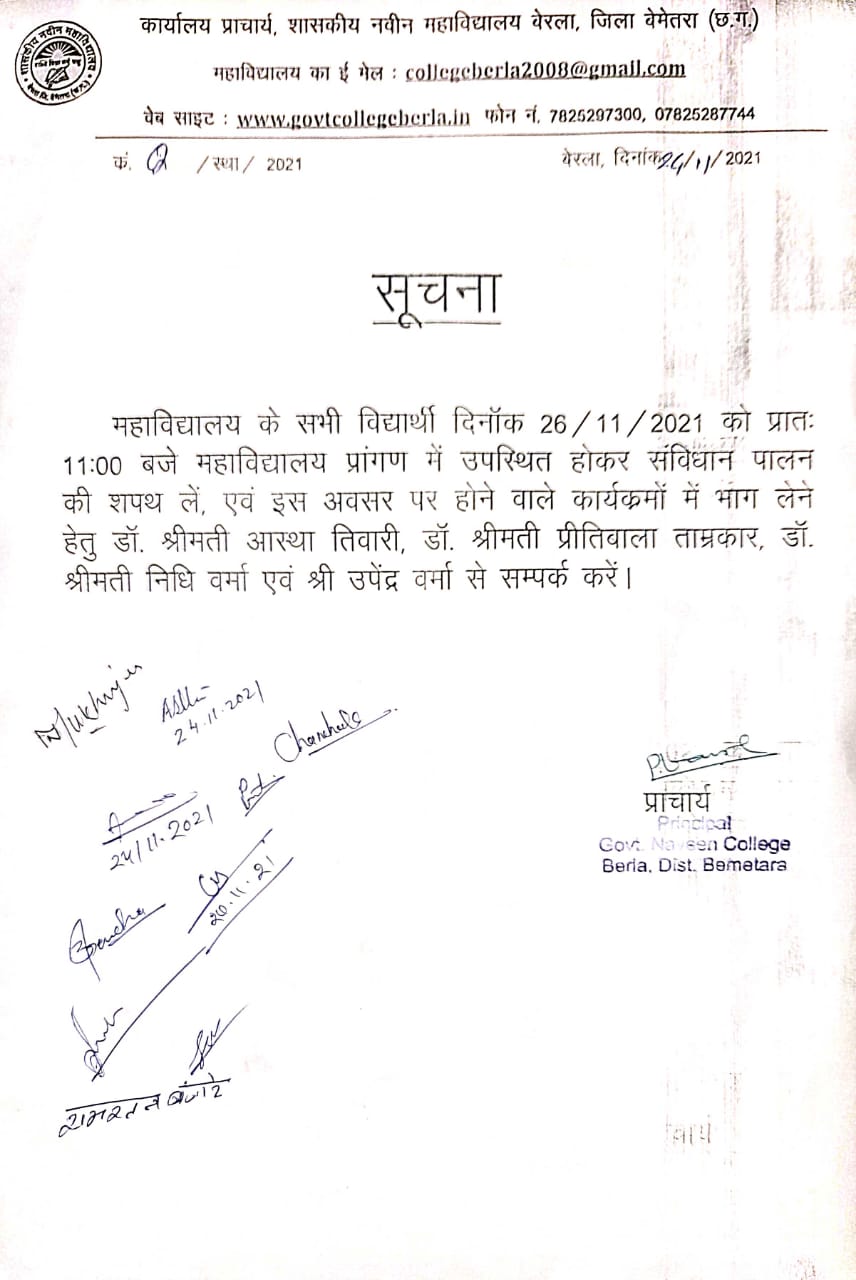 कार्यालय प्राचार्य, शासकीय नवीन महाविद्यालय बेरला, जिला बेमेतरा (छ.ग.)
महाविद्यालय का ई मेल : collegeberla2008@gmail.com
वेब साइट : www.govtcollegeberla.in फोन नं. 7825297300, 07825287744
कं. /स्था/ 2021 बेरला, दिनांक /11/2021
सूचना
महाविद्यालय के सभी विद्यार्थी दिनॉक 26/11/2021 को प्रातः
11:00 बजे महाविद्यालय प्रांगण में उपस्थित होकर संविधान पालन
की शपथ लें, एवं इस अवसर पर होने वाले कार्यकमों में भाग लेने
हेतु डॉ. श्रीमती आस्था तिवारी, डॉ. श्रीमती प्रीतिबाला ताम्रकार, डॉ.
श्रीमती निधि वर्मा एवं श्री उपेंद्र वर्मा से सम्पर्क करें।
24.11.2021
24/11.2021
प्राचार्य
Principal
Govt. Naveen College
Berla, Dist. Bemetara
रामरतन बंजारे